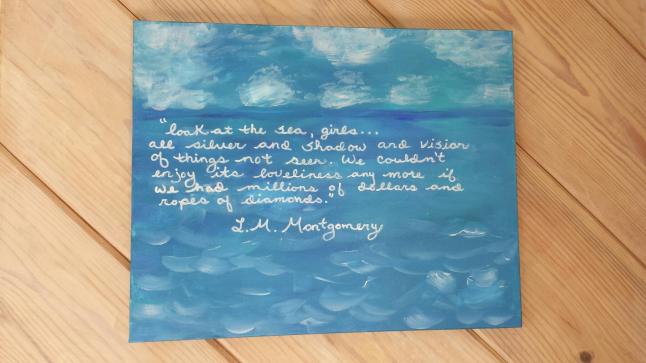 "look at the sea, girls...
all silver and shadow and vision
of things not seen. We couldn't
enjoy its loveliness any more if
we had millions of dollars and
ropes of diamonds."
L.M. Montgomery